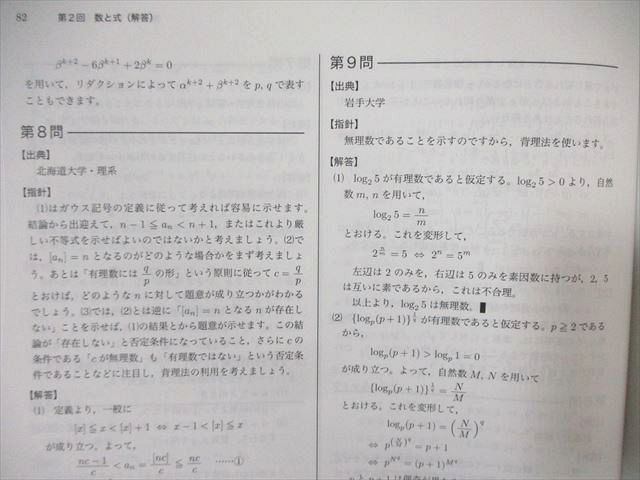 82 第2回 数と式（解答）
β^{k+2} − 6β^{k+1} + 2β^k = 0
を用いて，リダクションによって α^{k+2} + β^{k+2} を p, q で表す
こともできます。
第8問
【出典】
北海道大学・理系
【指針】
(1)はガウス記号の定義に従って考えれば容易に示せます。
結論から出迎えて，n − 1 ≦ a_n < n + 1，またはこれより厳
しい不等式を示せばよいのではないかと考えましょう。(2)で
は，[a_n] = n となるのがどのような場合かをまず考えましょ
う。あとは「有理数には q/p の形」という原則に従って c = q/p
とおけば，どのような n に対して題意が成り立つかがわかる
でしょう。(3)では，(2)とは逆に「[a_n] = n となる n が存在し
ない」ことを示せば，(1)の結果とから題意が示せます。この結
論が「存在しない」と否定条件になっていること，さらに c の
条件である「c が無理数」も「有理数ではない」という否定条
件であることなどに注目し，背理法の利用を考えましょう。
【解答】
(1) 定義より，一般に
[x] ≦ x < [x] + 1 ⇔ x − 1 < [x] ≦ x
が成り立つ。よって，
(nc − 1)/c < a_n = [nc]/c ≦ nc/c ……①
第9問
【出典】
岩手大学
【指針】
無理数であることを示すのですから，背理法を使います。
【解答】
(1) log_2 5 が有理数であると仮定する。log_2 5 > 0 より，自然
数 m, n を用いて，
log_2 5 = n/m
とおける。これを変形して，
2^{n/m} = 5 ⇔ 2^n = 5^m
左辺は 2 のみを，右辺は 5 のみを素因数に持つが，2, 5
は互いに素であるから，これは不合理。
以上より，log_2 5 は無理数。■
(2) {log_p(p+1)}^{1/q} が有理数であると仮定する。p ≧ 2 である
から，
log_p(p+1) > log_p 1 = 0
が成り立つ。よって，自然数 M, N を用いて
{log_p(p+1)}^{1/q} = N/M
とおける。これを変形して，
log_p(p+1) = (N/M)^q
⇔ p^{(N/M)^q} = p + 1
⇔ p^{N^q} = (p+1)^{M^q}